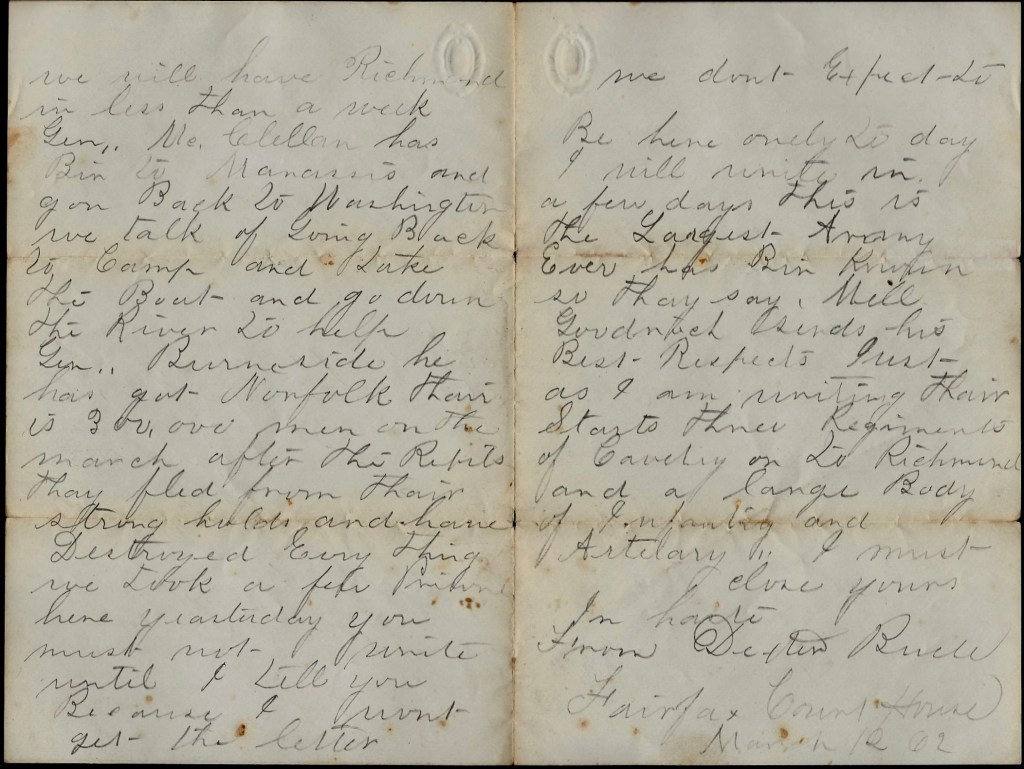 we will have Richmond
in less than a week
Gen,, Mc. Clellan has
Bin to Manassis and
gon Back to Washington
we talk of Going Back
to Camp and Take
the Boat and go down
the River to help
Gen,, Burneside he
has got Norfolk thair
is 300,000 men on the
march after the Rebils
thay fled from thair
strong holds and have
Destroyed Evry thing
we took a few Prisine
here yeasterday you
must not write
until I tell you
Because I wont
get the letter
we dont Expect to
Be here onely to day
I will write in
a few days this is
the Largest Army
Ever has Bin Known
so thay say, Mill
Goodrich Sends his
Best Respects Just
as I am writing thair
Starts three Regiments
of Cavelry on to Richmond
and a large Body
of Infantry and
Artelary ,, I must
close yours
In haste
From Dexter Buell
Fairfax Court House
March 12 62